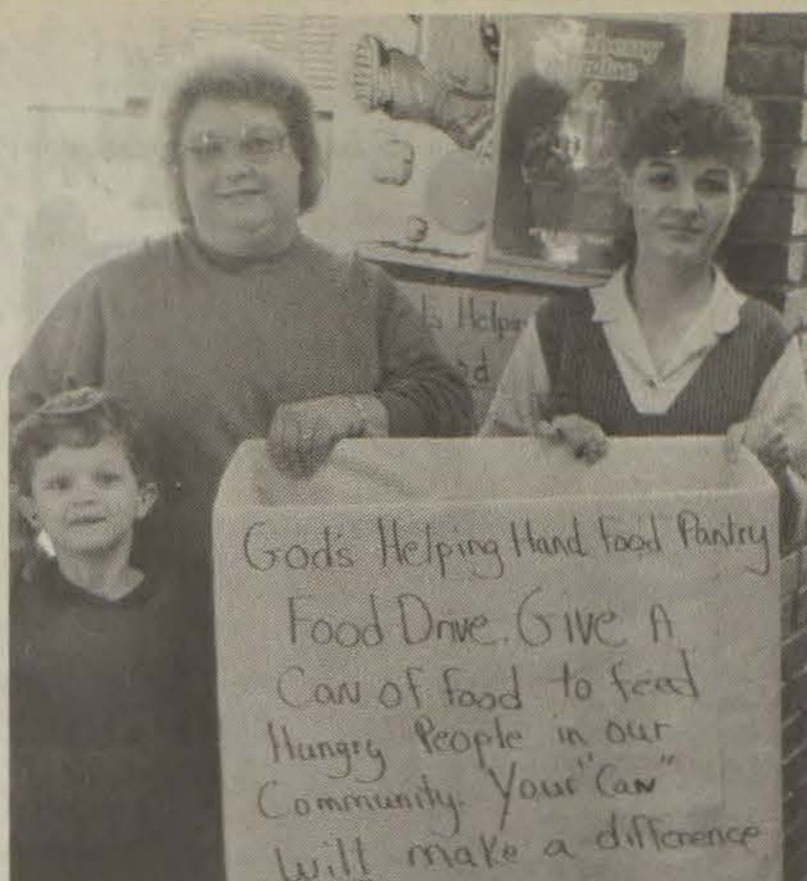 's Helping
God's Helping Hand Food Pantry
Food Drive. Give A
Can of food to feed
Hungry People in our
Community. Your "Can"
will make a difference